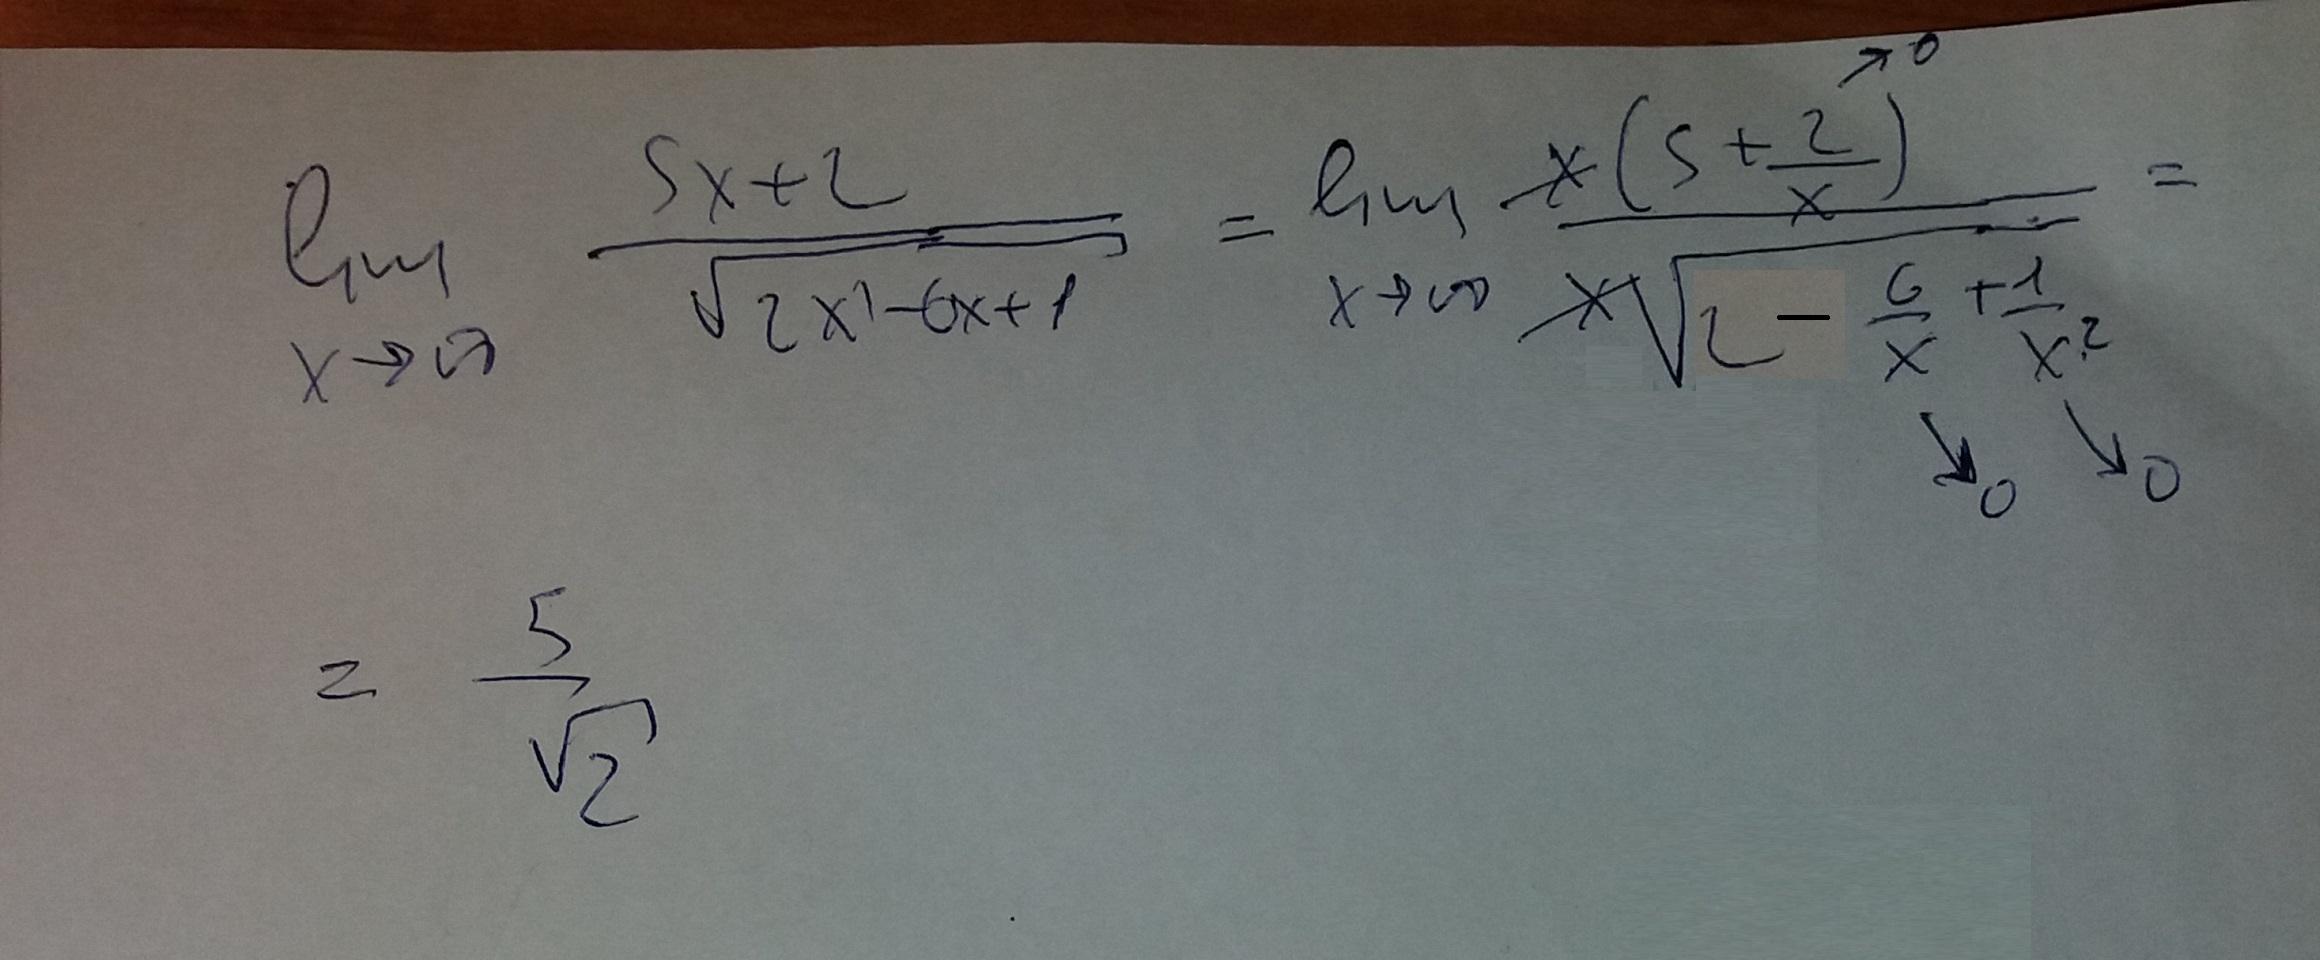 lim x→∞ (5x+2)/√(2x²-6x+1) = lim x→∞ x(5+2/x)/(x√(2-6/x+1/x²)) =
→0
→0 →0
= 5/√2